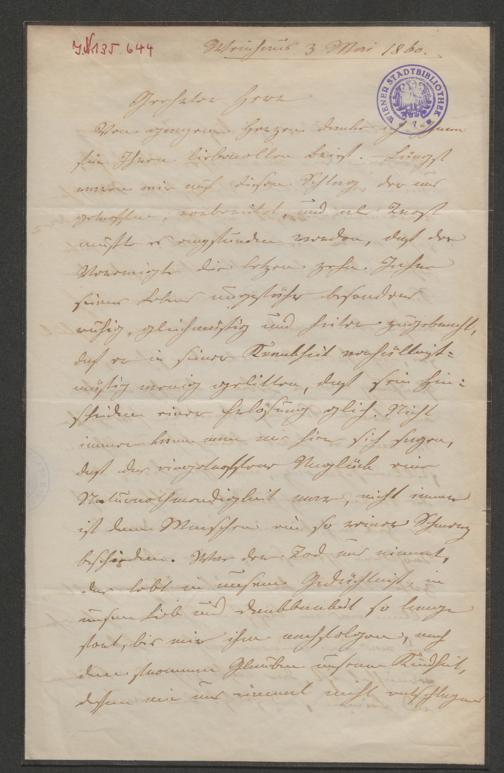 J.N 135.644
Weinhaus 3 Mai 1860.
WIENER STADTBIBLIOTHEK
Geehrter Herr
Von ganzem Herzen danke ich Ihnen
für Ihren liebevollen Brief. Längst
waren wir auf diesen Schlag, der uns
getroffen, vorbereitet, und als Trost
mußte es eingestanden werden, daß der
Verewigte die letzten zehn Jahre
seines Lebens ungestört besonders
ruhig, gleichmäßig und heiter zugebracht,
daß er in seiner Krankheit verhältniß-
mäßig wenig gelitten, daß sein Hin-
scheiden einer Erlösung glich. Nicht
immer kann man wie hier sich sagen,
daß das eingetroffene Unglück eine
Naturnothwendigkeit war, nicht immer
ist dem Menschen ein so reiner Schmerz
beschieden. Was der Tod uns nimmt,
das lebt in unserm Gedächtniß, in
unsrer Lieb und Dankbarkeit so lange
fort, bis wir ihm nachfolgen, nach
dem frommen Glauben unserer Kindheit,
dessen wir uns einmal nicht entschlagen